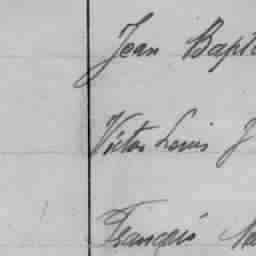 Jean Bapt
Victor Louis J
François